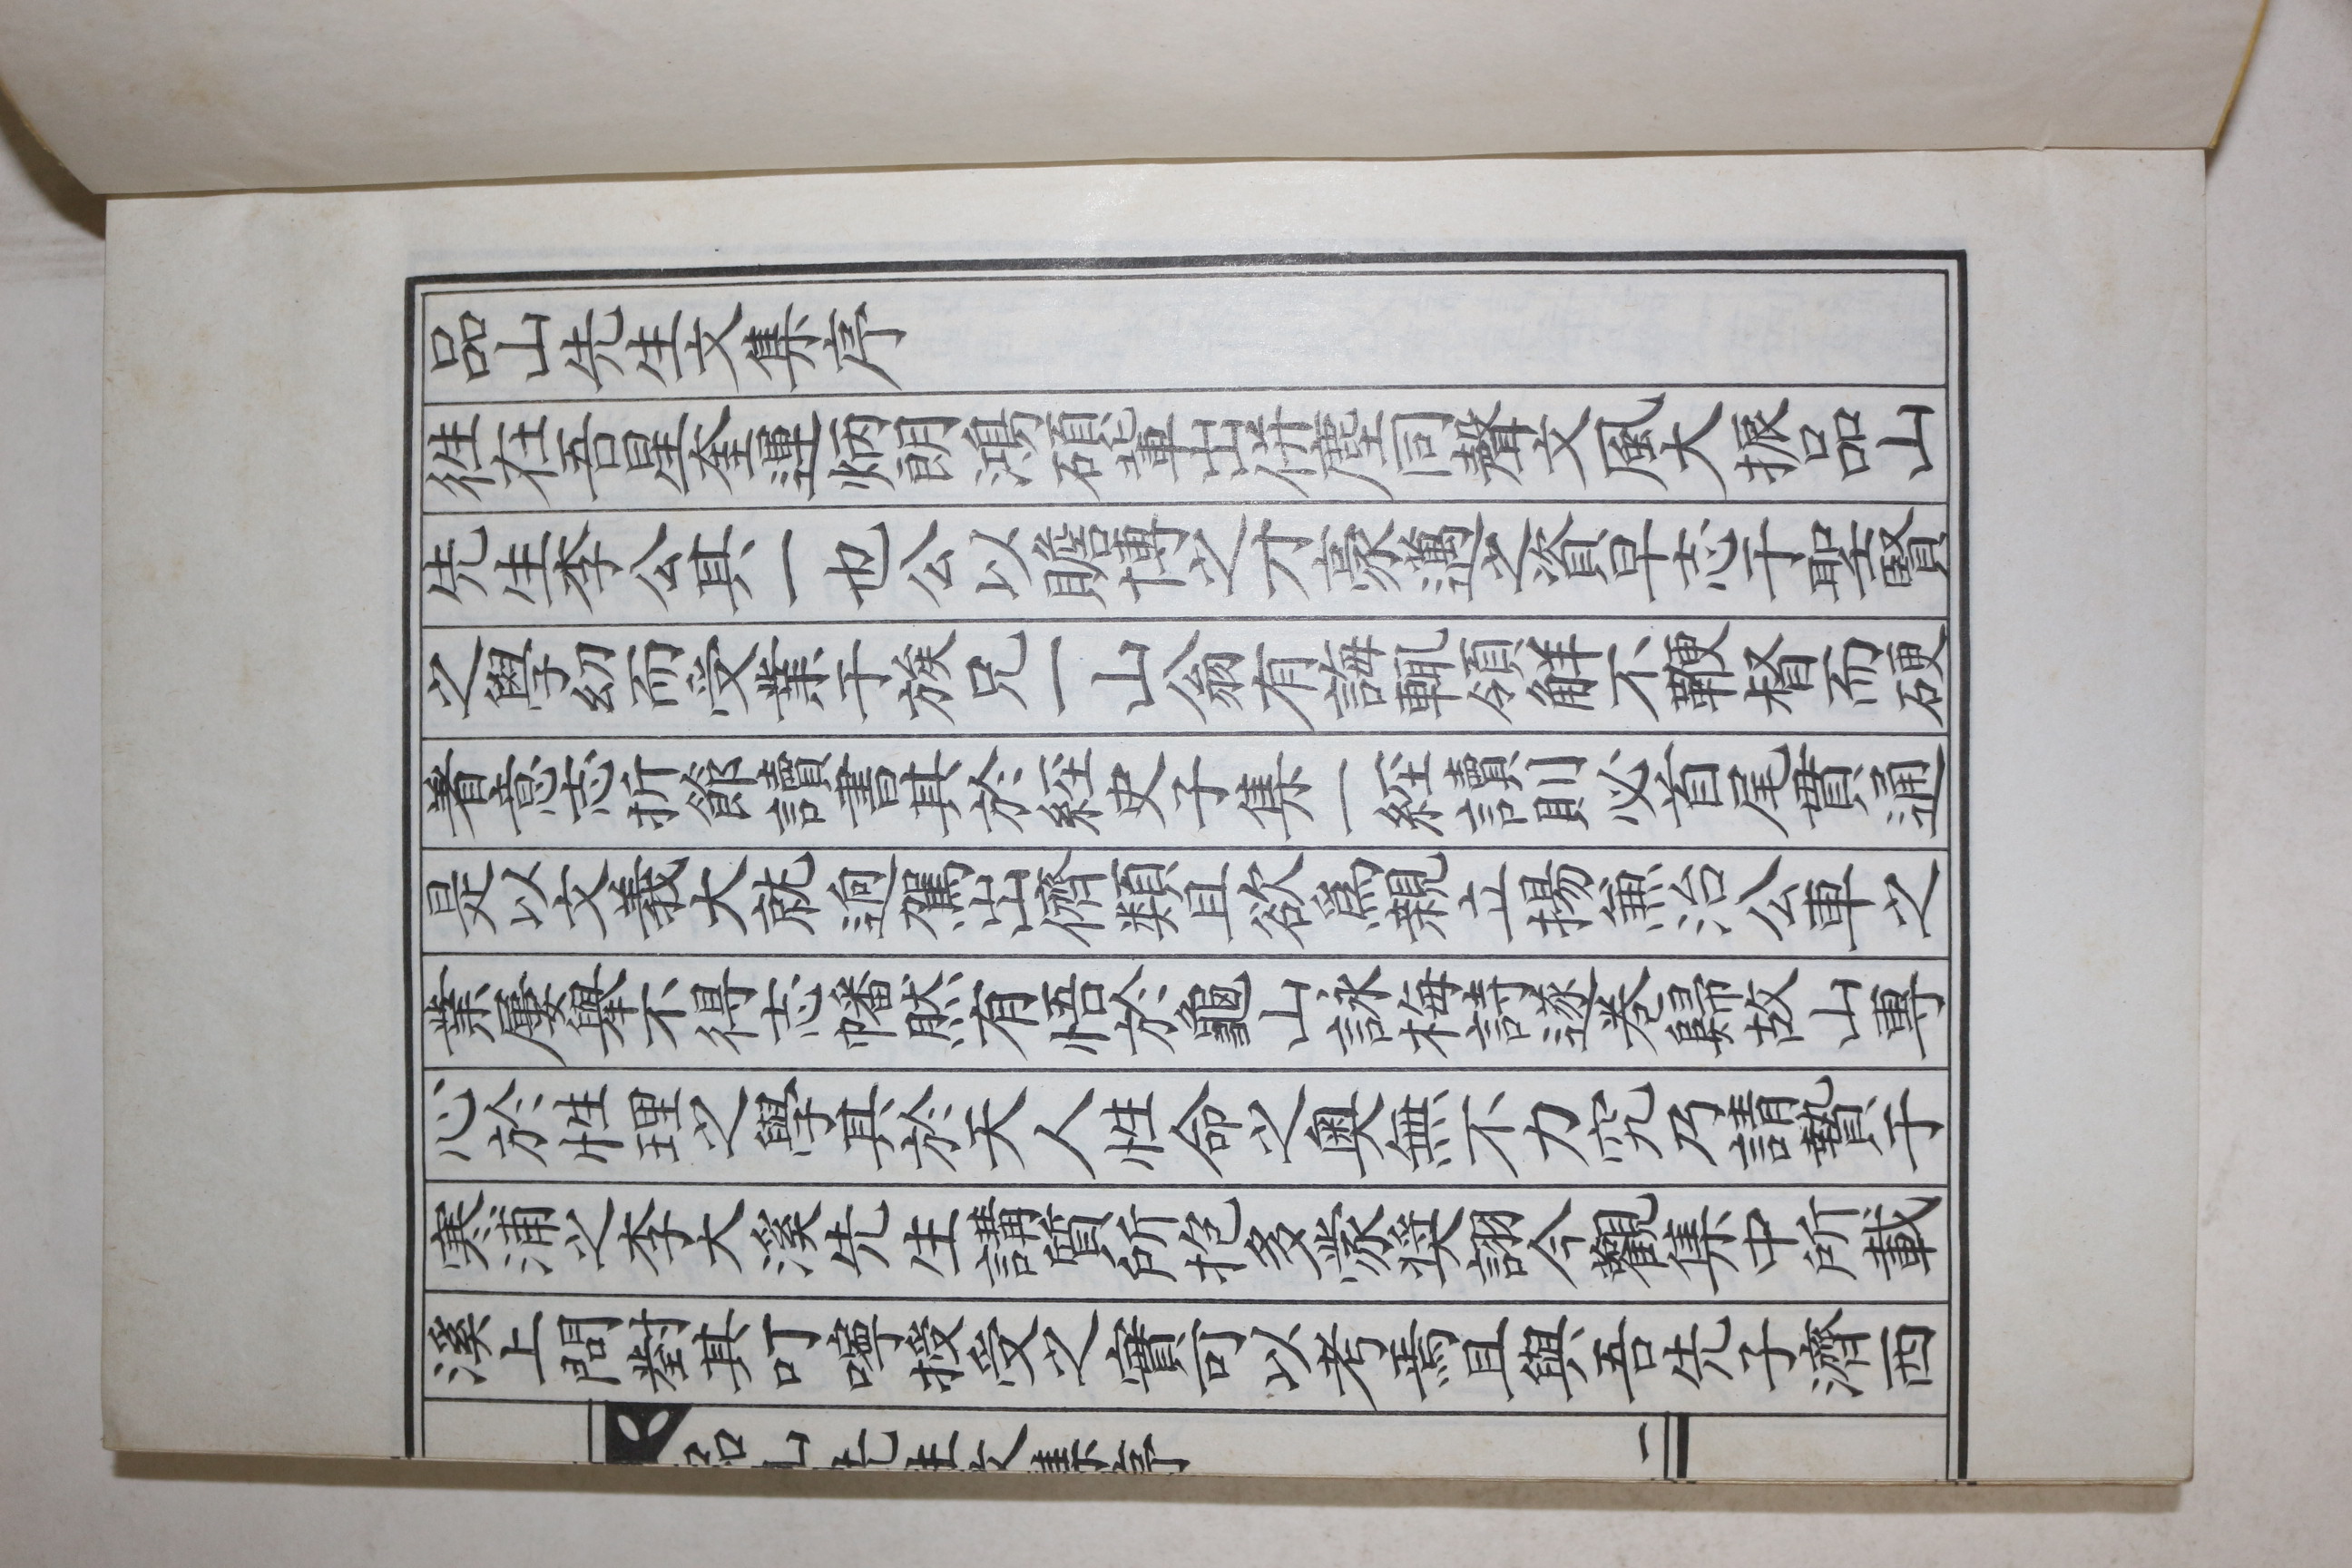 品山先生文集序
徃在吾星奎運炳朗鴻碩輩出併塵同聲文風大振品山
先生李公其一也公以贍博之才豪邁之資早志于聖賢
之學幼而受業于族兄一山翁有誨輒領觧不鞭督而硬
着意志折節讀書其於經史子集一經讀則必首尾貫通
是以文義大就逈駕出儕類且欲爲親立揚兼治公車之
業屢擧不得志幡然有悟於龜山詠梅詩遂卷歸故山專
心於性理之學其於天人性命之奧無不力究乃請贄于
寒浦之李大溪先生講質所抱多蒙奬詡今觀集中所載
溪上問對其叮嚀授受之實可以考焉且與吾先子濟西
品山先生文集序
一